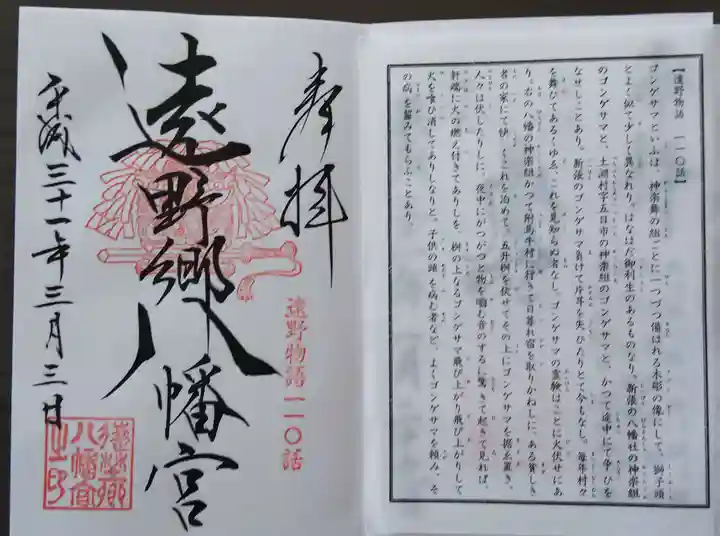 【遠野物語 一一〇話】
ゴンゲサマといふは、神楽舞の組ごとに一つづつ備はれる木彫の像にして、獅子頭
とよく似て少しく異なれり。はなはだ御利生のあるものなり。新張の八幡社の神楽組
のゴンゲサマと、土淵村字五日市の神楽組のゴンゲサマと、かつて途中にて争ひを
なせしことあり。新張のゴンゲサマ負けて片耳を失ひたりとて今もなし。毎年村々
を舞ひてあるくゆゑ、これを見知らぬ者なし。ゴンゲサマの霊験はことに火伏せにあ
り。右の八幡の神楽組かつて附馬牛村に行きて日暮れ宿を取りかねしに、ある貧しき
者の家にて快くこれを泊めて、五升桝を伏せてその上にゴンゲサマを据ゑ置き、
人々は伏したりしに、夜中にがつがつと物を噛む音のするに驚きて起きて見れば、
軒端に火の燃え付きてありしを、桝の上なるゴンゲサマ飛び上がり飛び上がりして
火を食ひ消してありしなりと。子供の頭を病む者など、よくゴンゲサマを頼み、そ
の病を噛みてもらふことあり。
奉拝
遠野物語一一〇話
遠野郷八幡宮
平成三十一年三月三日
遠野郷
八幡宮
之印